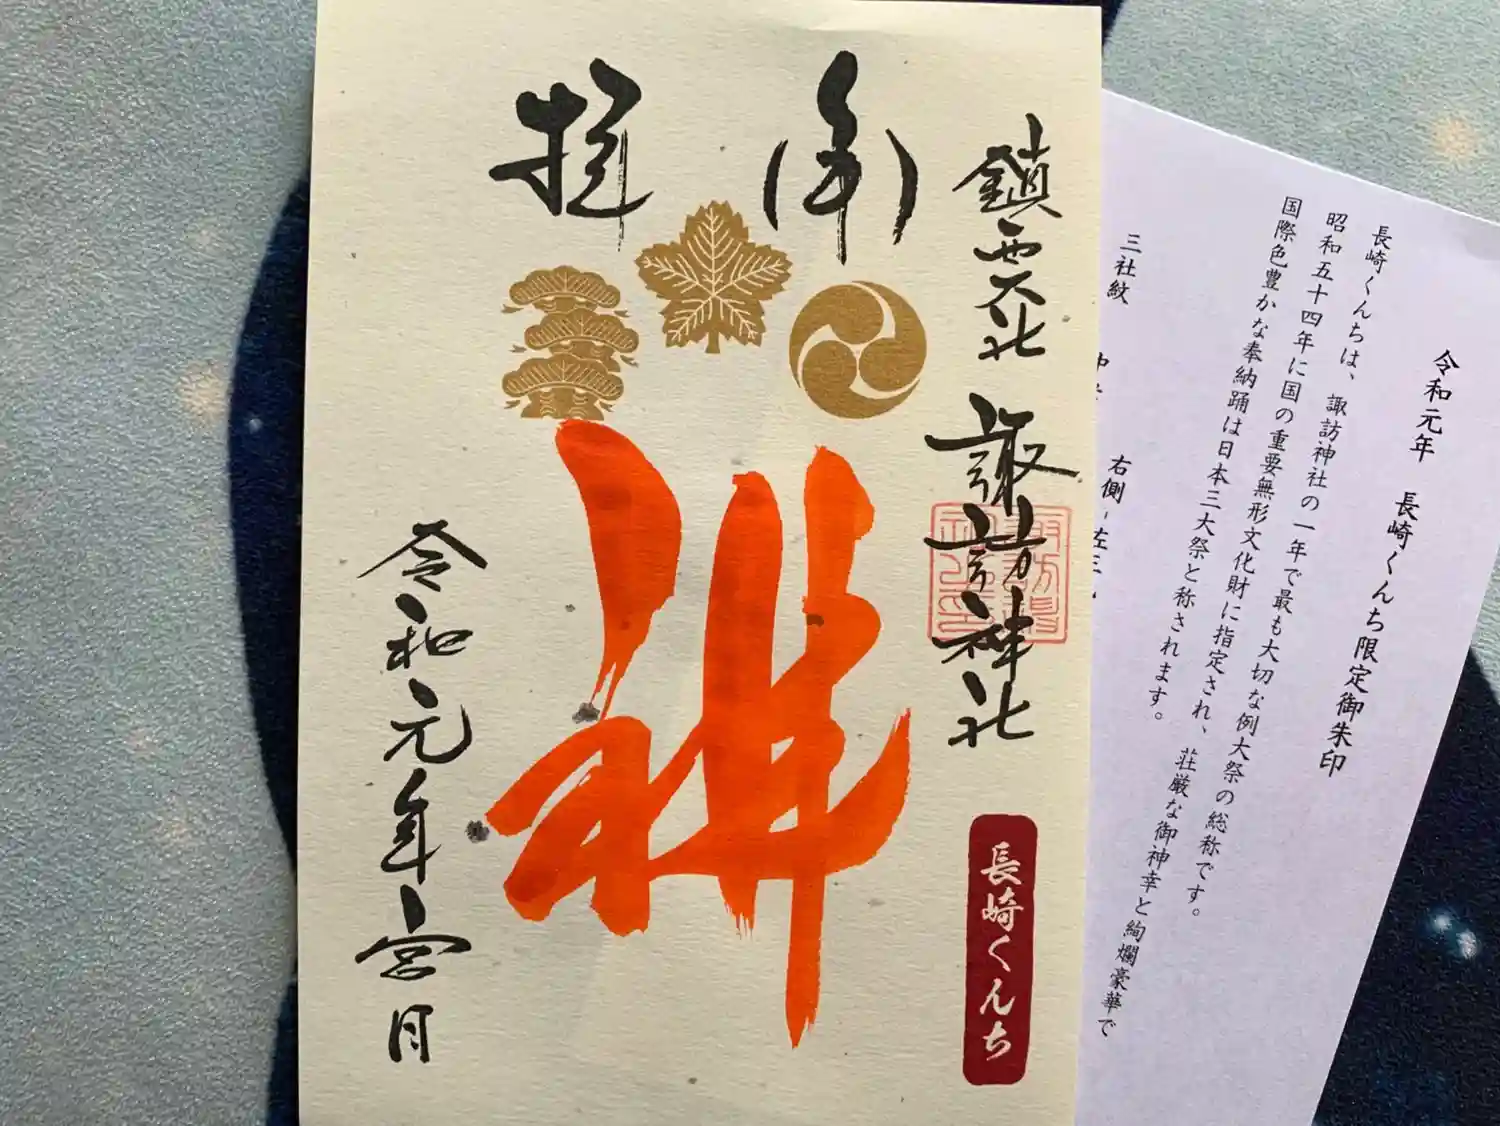 令和元年 長崎くんち限定御朱印
長崎くんちは、諏訪神社の一年で最も大切な例大祭の総称です。
昭和五十四年に国の重要無形文化財に指定され、荘厳な御神幸と絢爛豪華で
国際色豊かな奉納踊は日本三大祭と称されます。
三社紋 右側-左三
鎮西大社 諏訪神社
長崎くんち
奉拝
令和元年 月